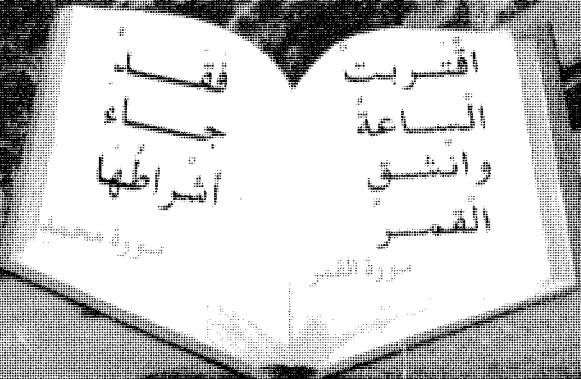 اقتربت
الساعة
وانشق
القمر
سورة القمر
فقد
جاء
أشراطها
سورة محمد